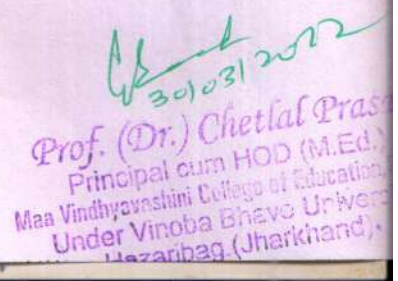 30/03/2022
Prof. (Dr.) Chetlal Prasa
Principal cum HOD (M.Ed.)
Maa Vindhyavashini College of Education,
Under Vinoba Bhave Univers
Hazaribag (Jharkhand).